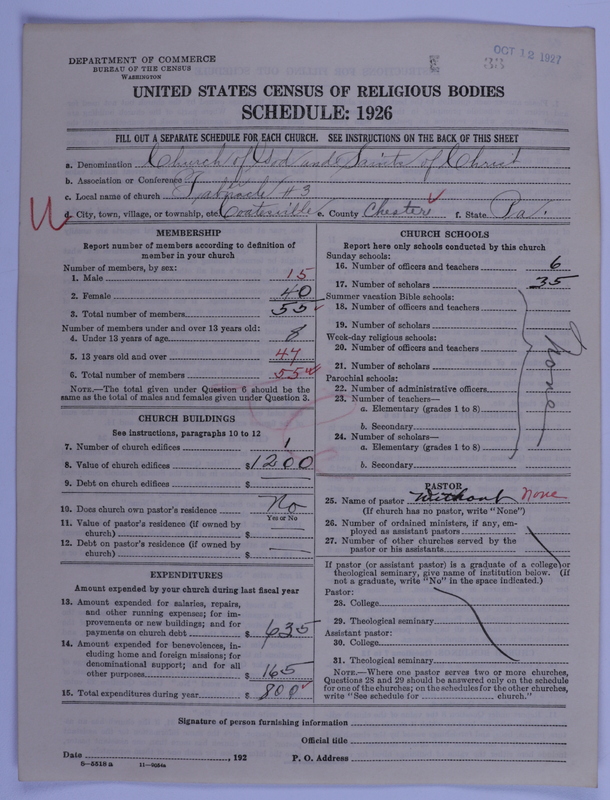 DEPARTMENT OF COMMERCE
BUREAU OF THE CENSUS
WASHINGTON
E
33
OCT 12 1927
UNITED STATES CENSUS OF RELIGIOUS BODIES
SCHEDULE: 1926
FILL OUT A SEPARATE SCHEDULE FOR EACH CHURCH. SEE INSTRUCTIONS ON THE BACK OF THIS SHEET
a. Denomination Church of God and Saints of Christ
b. Association or Conference
c. Local name of church Tabnacle #3
d. City, town, village, or township, etc. Coatesville e. County Chester f. State Pa.
MEMBERSHIP
Report number of members according to definition of
member in your church
Number of members, by sex:
1. Male 15
2. Female 40
3. Total number of members 55
Number of members under and over 13 years old:
4. Under 13 years of age 8
5. 13 years old and over 47
6. Total number of members 55
NOTE.—The total given under Question 6 should be the
same as the total of males and females given under Question 3.
CHURCH BUILDINGS
See instructions, paragraphs 10 to 12
7. Number of church edifices 1
8. Value of church edifices $1200
9. Debt on church edifices $
10. Does church own pastor's residence No
Yes or No
11. Value of pastor's residence (if owned by
church) $
12. Debt on pastor's residence (if owned by
church) $
EXPENDITURES
Amount expended by your church during last fiscal year
13. Amount expended for salaries, repairs,
and other running expenses; for im-
provements or new buildings; and for
payments on church debt $ 635
14. Amount expended for benevolences, in-
cluding home and foreign missions; for
denominational support; and for all
other purposes $ 165
15. Total expenditures during year $ 800
CHURCH SCHOOLS
Report here only schools conducted by this church
Sunday schools:
16. Number of officers and teachers 6
17. Number of scholars 35
Summer vacation Bible schools:
18. Number of officers and teachers
19. Number of scholars
Week-day religious schools:
20. Number of officers and teachers
21. Number of scholars
None
Parochial schools:
22. Number of administrative officers
23. Number of teachers—
a. Elementary (grades 1 to 8)
b. Secondary
24. Number of scholars—
a. Elementary (grades 1 to 8)
b. Secondary
PASTOR
25. Name of pastor Without None
(If church has no pastor, write "None")
26. Number of ordained ministers, if any, em-
ployed as assistant pastors
27. Number of other churches served by the
pastor or his assistants
If pastor (or assistant pastor) is a graduate of a college or
theological seminary, give name of institution below. (If
not a graduate, write "No" in the space indicated.)
Pastor:
28. College
29. Theological seminary
Assistant pastor:
30. College
31. Theological seminary
NOTE.—Where one pastor serves two or more churches,
Questions 28 and 29 should be answered only on the schedule
for one of the churches; on the schedules for the other churches,
write "See schedule for church."
Signature of person furnishing information
Official title
Date , 192 P. O. Address
8—5518 a 11—9054a